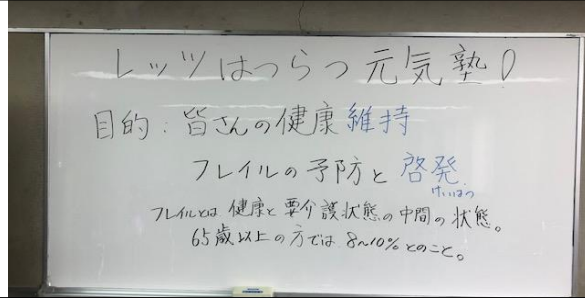 レッツはつらつ元気塾!
目的：皆さんの健康維持
フレイルの予防と啓発
けいはつ
フレイルとは健康と要介護状態の中間の状態。
65歳以上の方では8~10%とのこと。